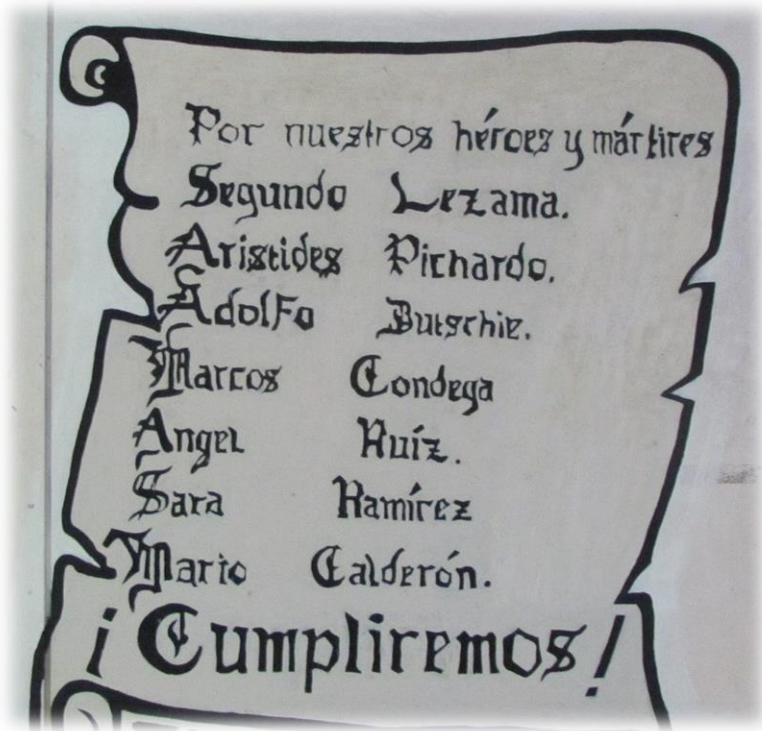 Por nuestros héroes y mártires
Segundo Lezama.
Aristides Pichardo.
Adolfo Butschie.
Marcos Condega
Angel Ruíz.
Sara Ramírez
Mario Calderón.
¡Cumpliremos!